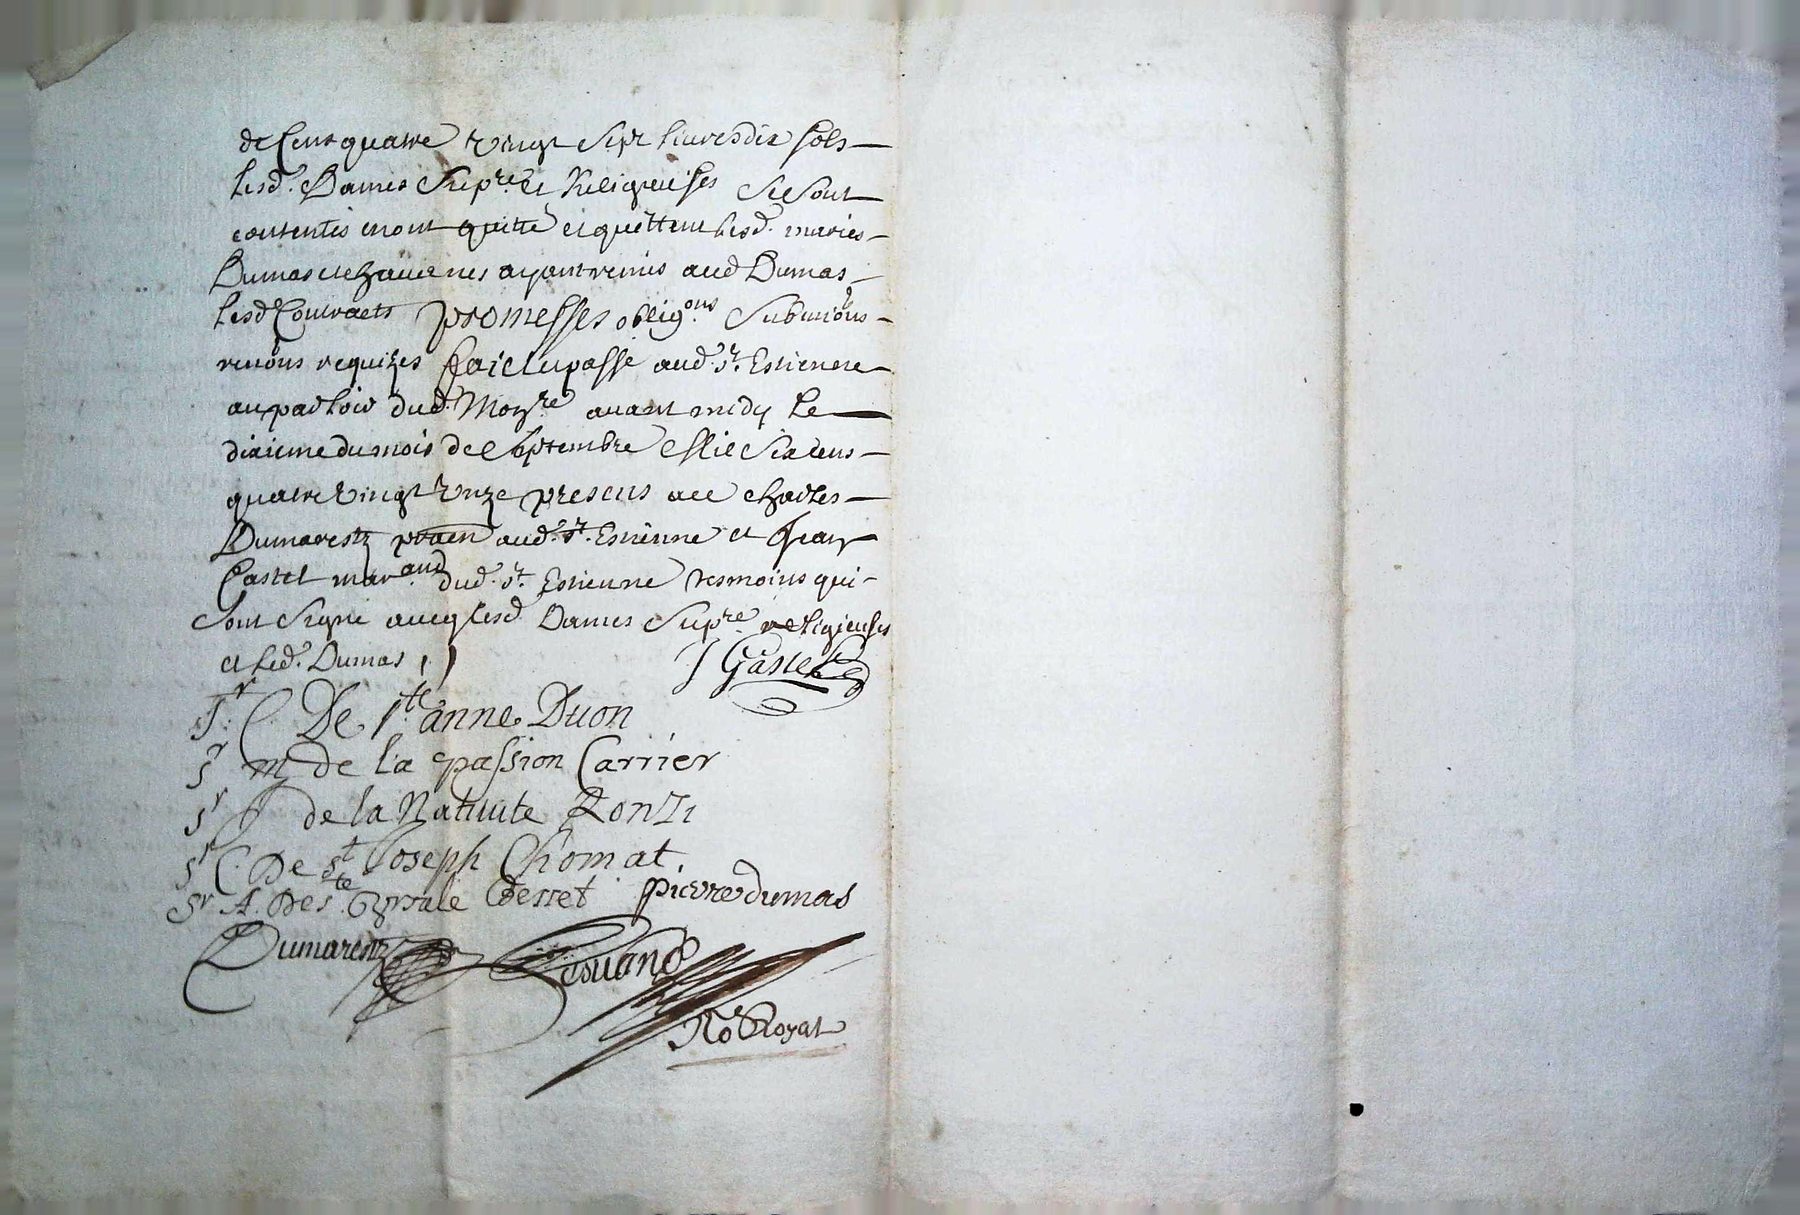 de Cent quatre vingt sept livres dix sols
lesd. Dames Supre. et Religieuses Se Sont
contentés en ont quitté et quittent lesd. mariés
Dumas et chavanes ayant remis aud Dumas
lesd Contracts promesses obligons Submions
renons requizes faict et passé aud. St. Estienne
au parloir dud. Monre avant midy le
dixieme du mois de Septembre Mil Six Cens
quatre vingt unze presens me Charles
Dumarestz praen aud. St. Estienne et Jean
Castel marand dud. St. Estienne tesmoins qui
Sont Signé avecq lesd Dames Supre religieuses
et led. Dumas
J Gastel
Sr C De Ste anne Duon
Sr m de la passion Carrier
Sr J de la Nativite Ronzi
Sr C. De st Joseph Chomat
Sr A. De Ste Ursule Besset Pierre dumas
Dumarestz
No Royal